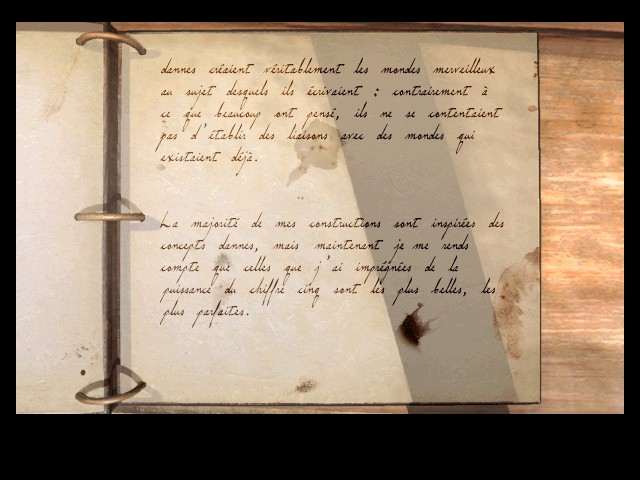 dannes créaient véritablement les mondes merveilleux
au sujet desquels ils écrivaient : contrairement à
ce que beaucoup ont pensé, ils ne se contentaient
pas d'établir des liaisons avec des mondes qui
existaient déjà.
La majorité de mes constructions sont inspirées des
concepts dannes, mais maintenant je me rends
compte que celles que j'ai imprégnées de la
puissance du chiffre cinq sont les plus belles, les
plus parfaites.